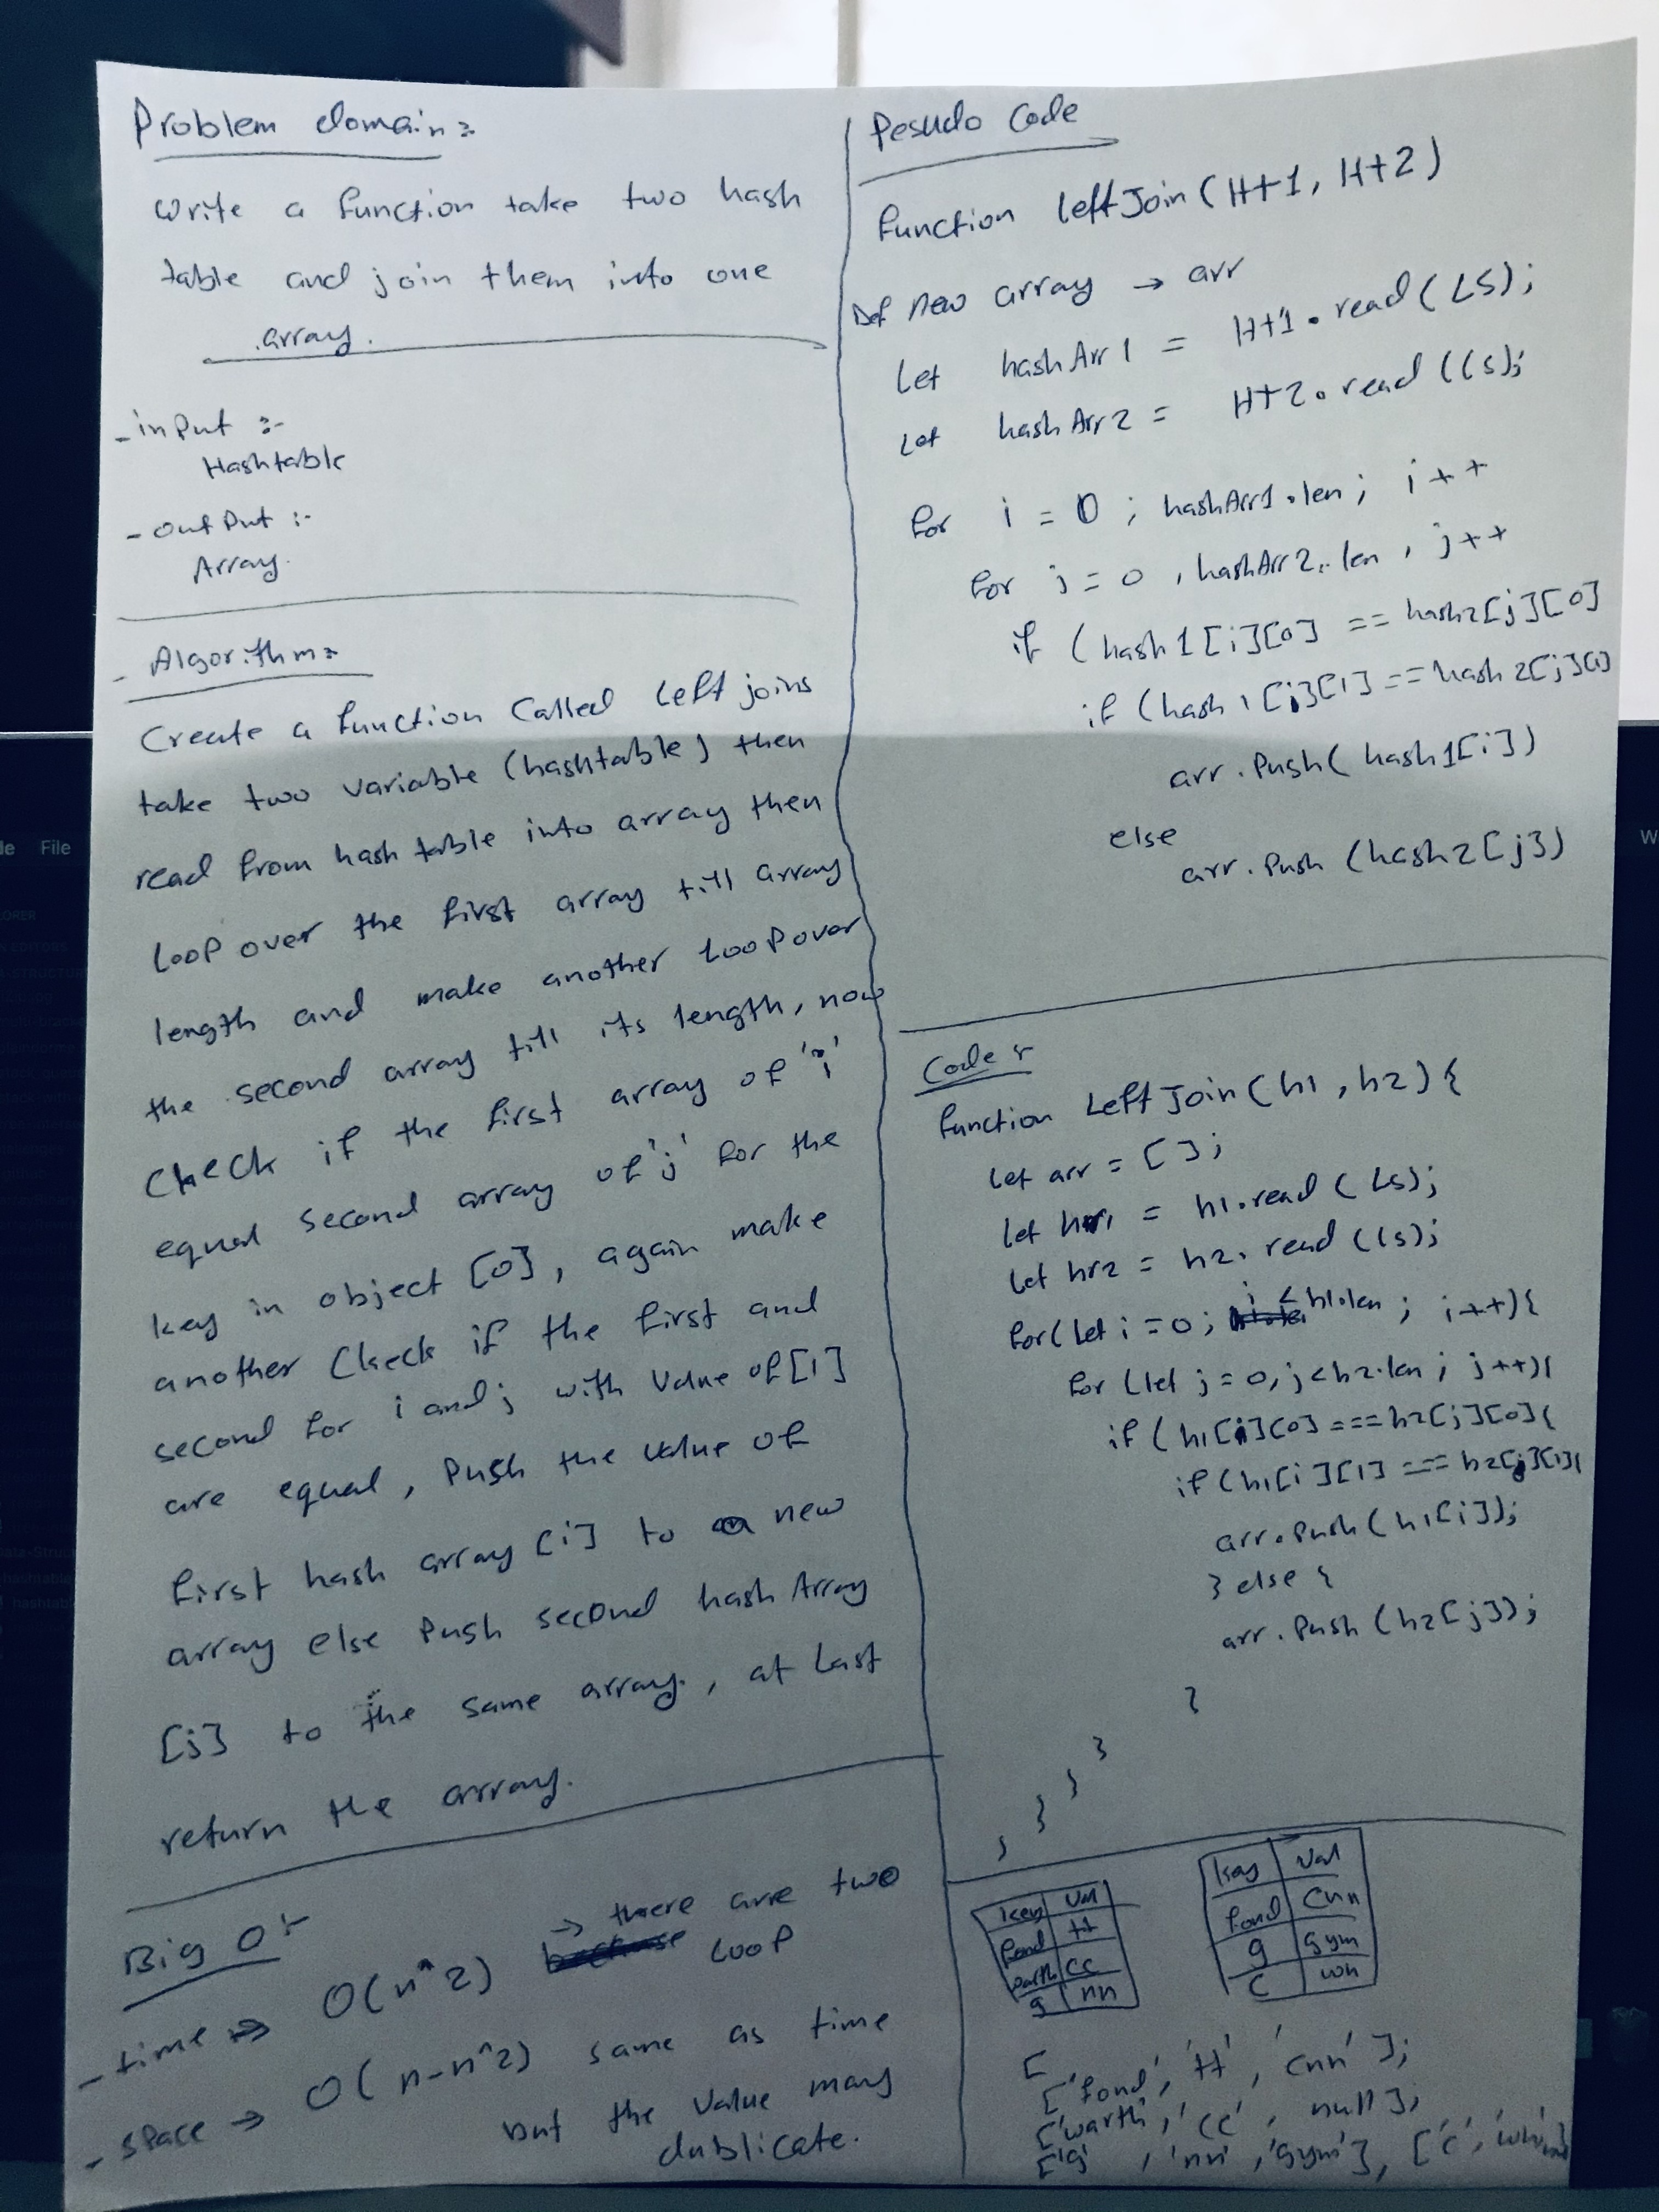 Problem domain:
write a function take two hash
table and join them into one
array.
- input :-
Hashtable
- output :-
Array.
- Algorithm:
Create a function Called Left joins
take two variable (hashtable) then
read from hash table into array then
Loop over the first array till array
length and make another Loop over
the second array till its length, now
Check if the first array of 'i'
equal second array of 'j' for the
key in object [0], again make
another Check if the first and
second for i and j with value of [1]
are equal, Push the value of
first hash array [i] to a new
array else Push second hash Array
[j] to the same array., at Last
return the array.
Big O:-
- time => O(n^2) -> there are two
Loop
- space -> O(n-n^2) same as time
but the value many
dublicate.
Pesudo Code
function leftJoin(Ht1, Ht2)
Def new array -> arr
Let hashArr1 = Ht1.read(LS);
Let hashArr2 = Ht2.read(LS);
for i = 0 ; hashArr1.len ; i++
for j = 0 , hashArr2.len , j++
if (hash1[i][0] == hash2[j][0]
if (hash1[i][1] == hash2[j][1]
arr.Push( hash1[i])
else
arr.Push (hash2[j])
Code:
function LeftJoin(h1, h2){
let arr = [];
let hr1 = h1.read(LS);
let hr2 = h2.read(LS);
for(let i=0; i<h1.len ; i++){
for(let j=0, j<h2.len ; j++){
if (h1[i][0] === h2[j][0]{
if (h1[i][1] === h2[j][1]{
arr.Push(h1[i]);
} else {
arr.Push(h2[j]);
}
}
}
}
}
key Val
fond tt
warth cc
g nn
Key Val
fond Cnn
g gym
C wh
[
['fond', 'tt', 'cnn'];
['warth', 'cc', null];
['g', 'nn', 'gym'], ['c',
File